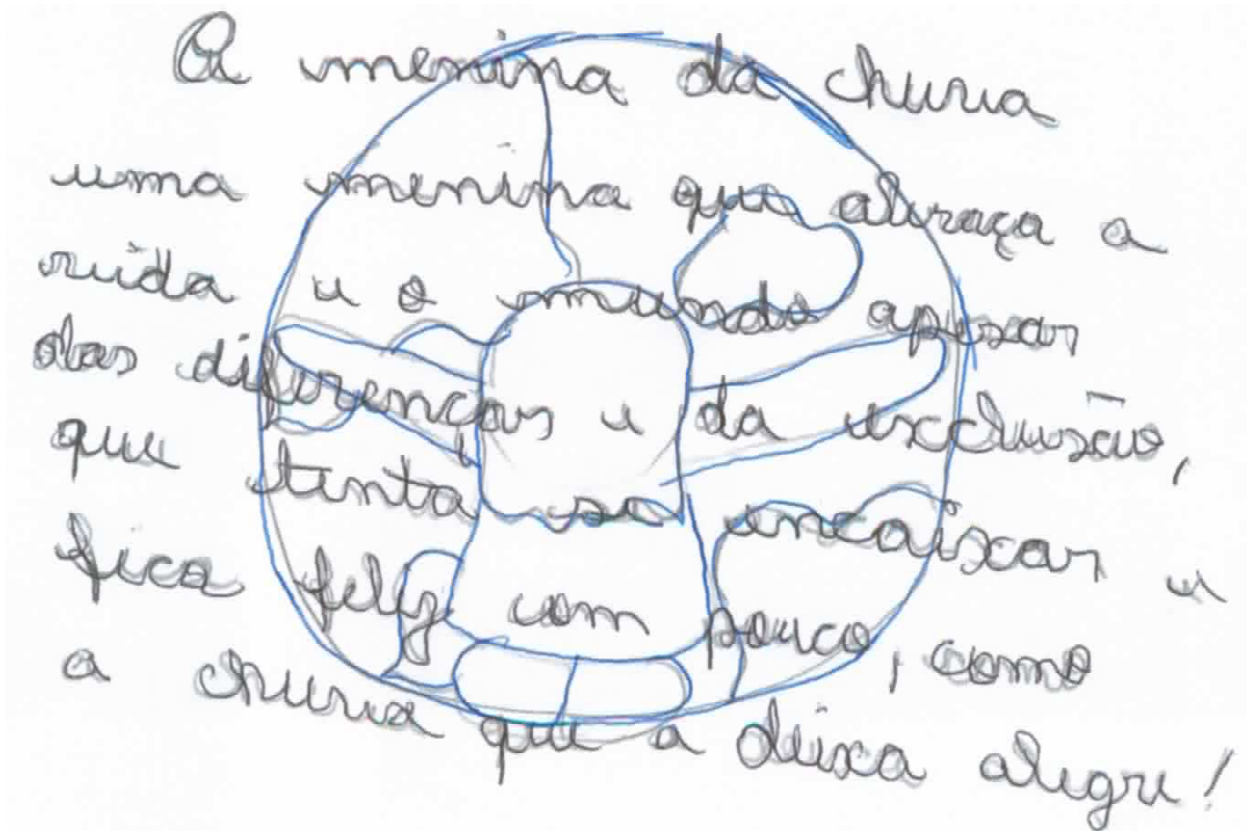 A menina da chuva
uma menina que abraça a
vida e o mundo apesar
das diferenças e da exclusão,
que tenta se encaixar e
fica feliz com pouco, como
a chuva que a deixa alegre!